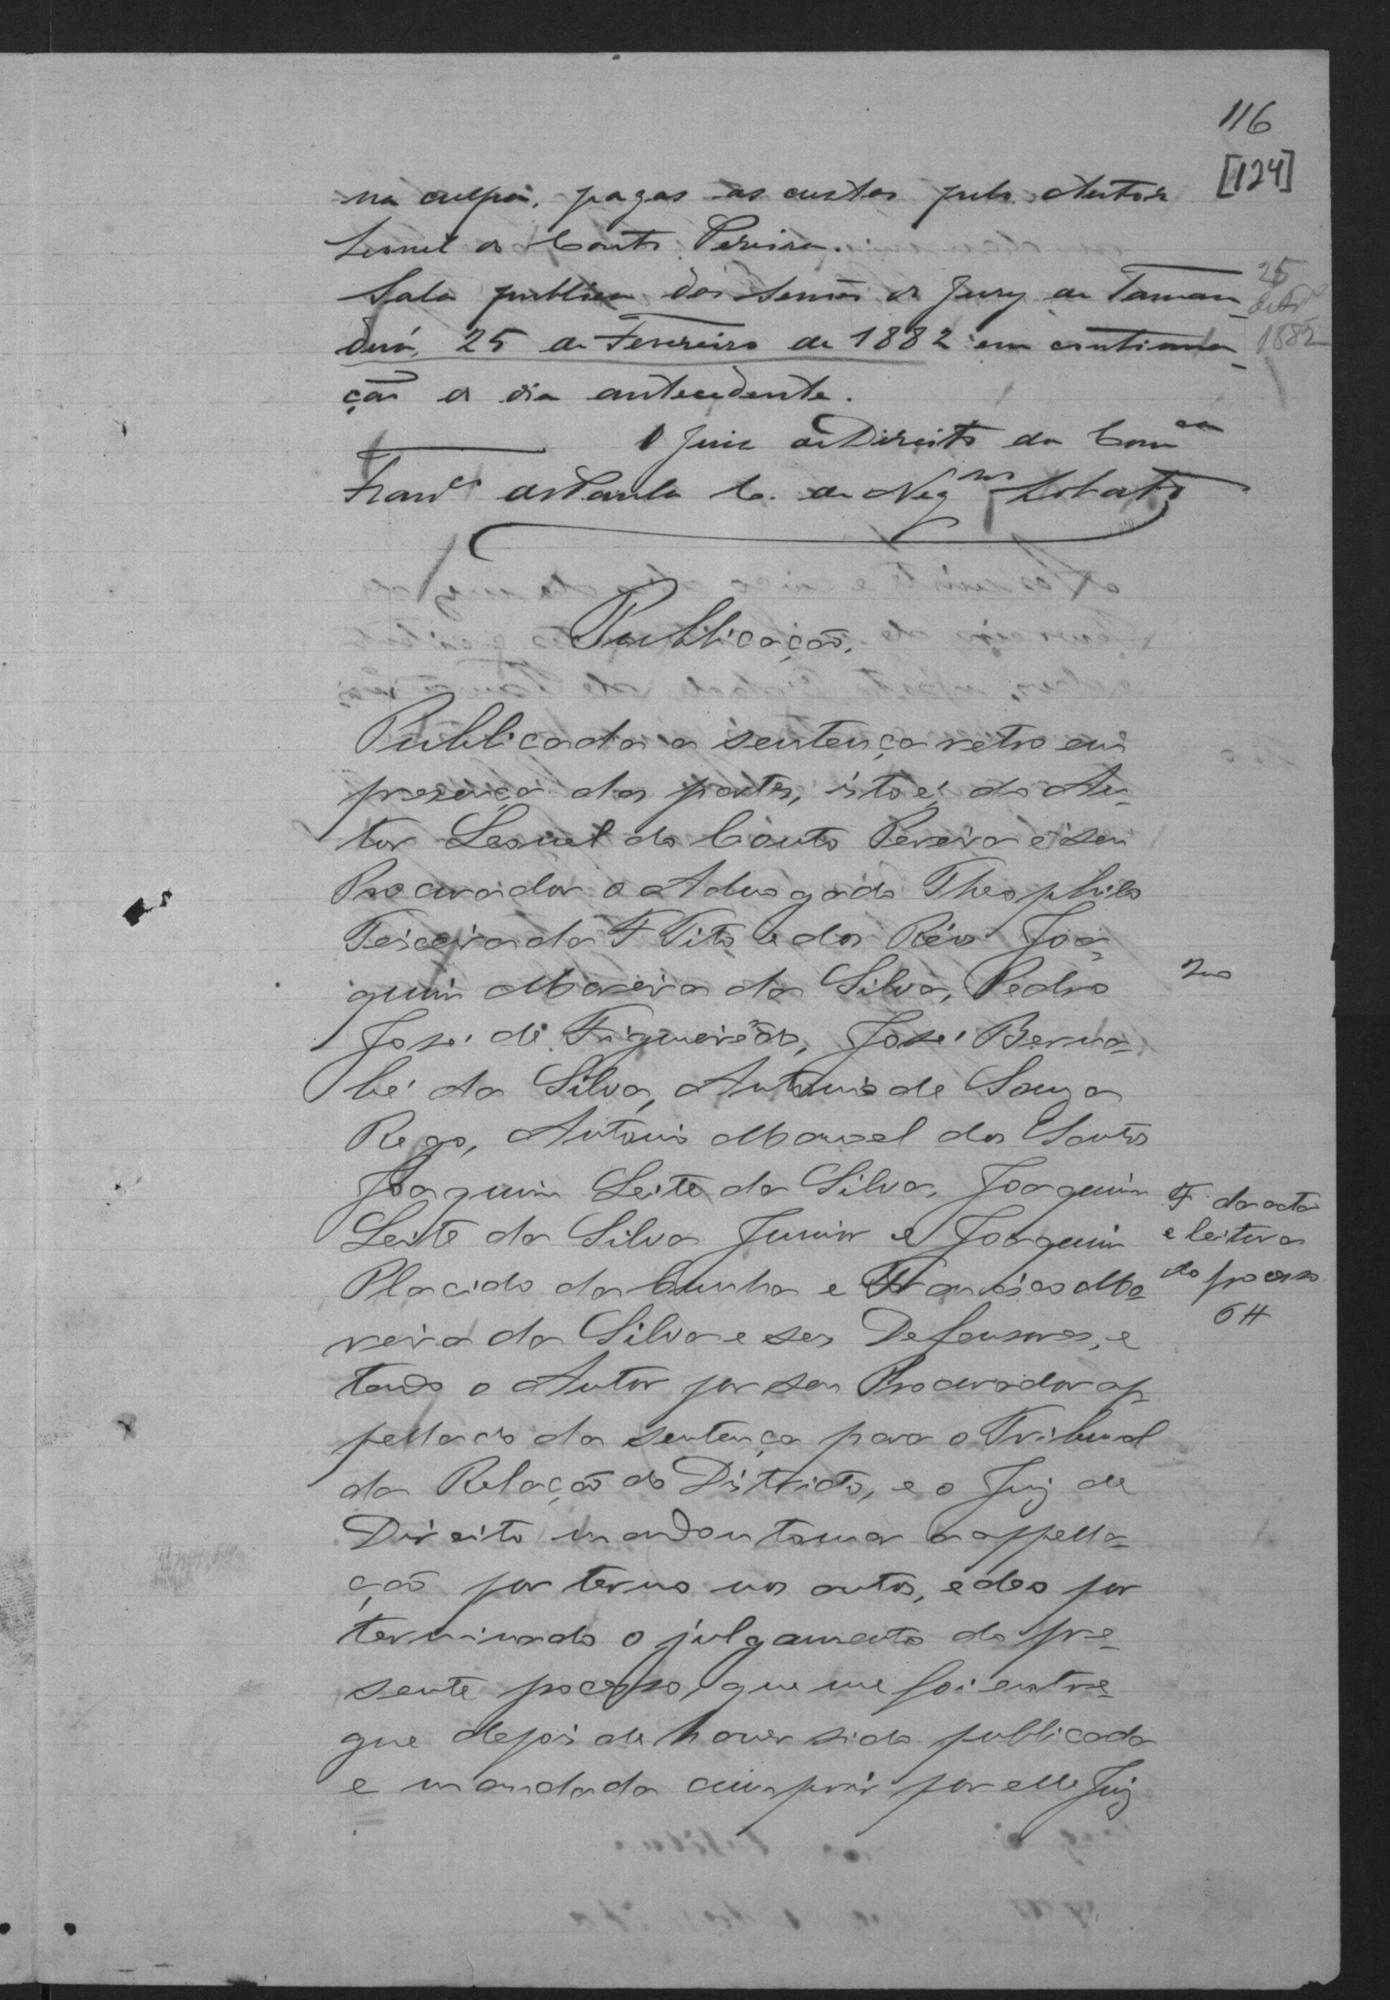 116
[124]
na culpa, pagas as custas pelo Autor
Leonel do Couto Pereira.
Sala publica das Sessões do Jury de Taman-
duá, 25 de Fevereiro de 1882 em continua-
ção do dia antecedente.
25
1882
O Juiz de Direito da Comca
Franco de Paula C. de Negros Lobato
Publicação.
Publicada a sentença retro em
presença das partes, isto é, do Au-
tor Leonel do Couto Pereira e seu
Procurador o Advogado Theophilo
Teixeira da F Tito e dos Réos Joa-
quim Moreira da Silva, Pedro
José de Figueirêdo, José Berna-
bé da Silva, Antonio de Souza
Rego, Antonio Manoel dos Santos
Joaquim Leite da Silva, Joaquim
Leite da Silva Junior e Joaquim
Placido da Cunha e Francisco Mo-
reira da Silva e ses Defensores, e
tendo o Autor por seu Procurador ap-
pellado da sentença para o Tribunal
da Relação do Districto, e o Juiz de
Direito mandou tomar a appella-
ção por termo nos autos, e deo por
terminado o julgamento do pre-
sente pocesso, que me foi entre-
gue depois de haver sido publicada
e mandada cumprir por elle Juiz
F. da acta
e leitura
do processo
6#